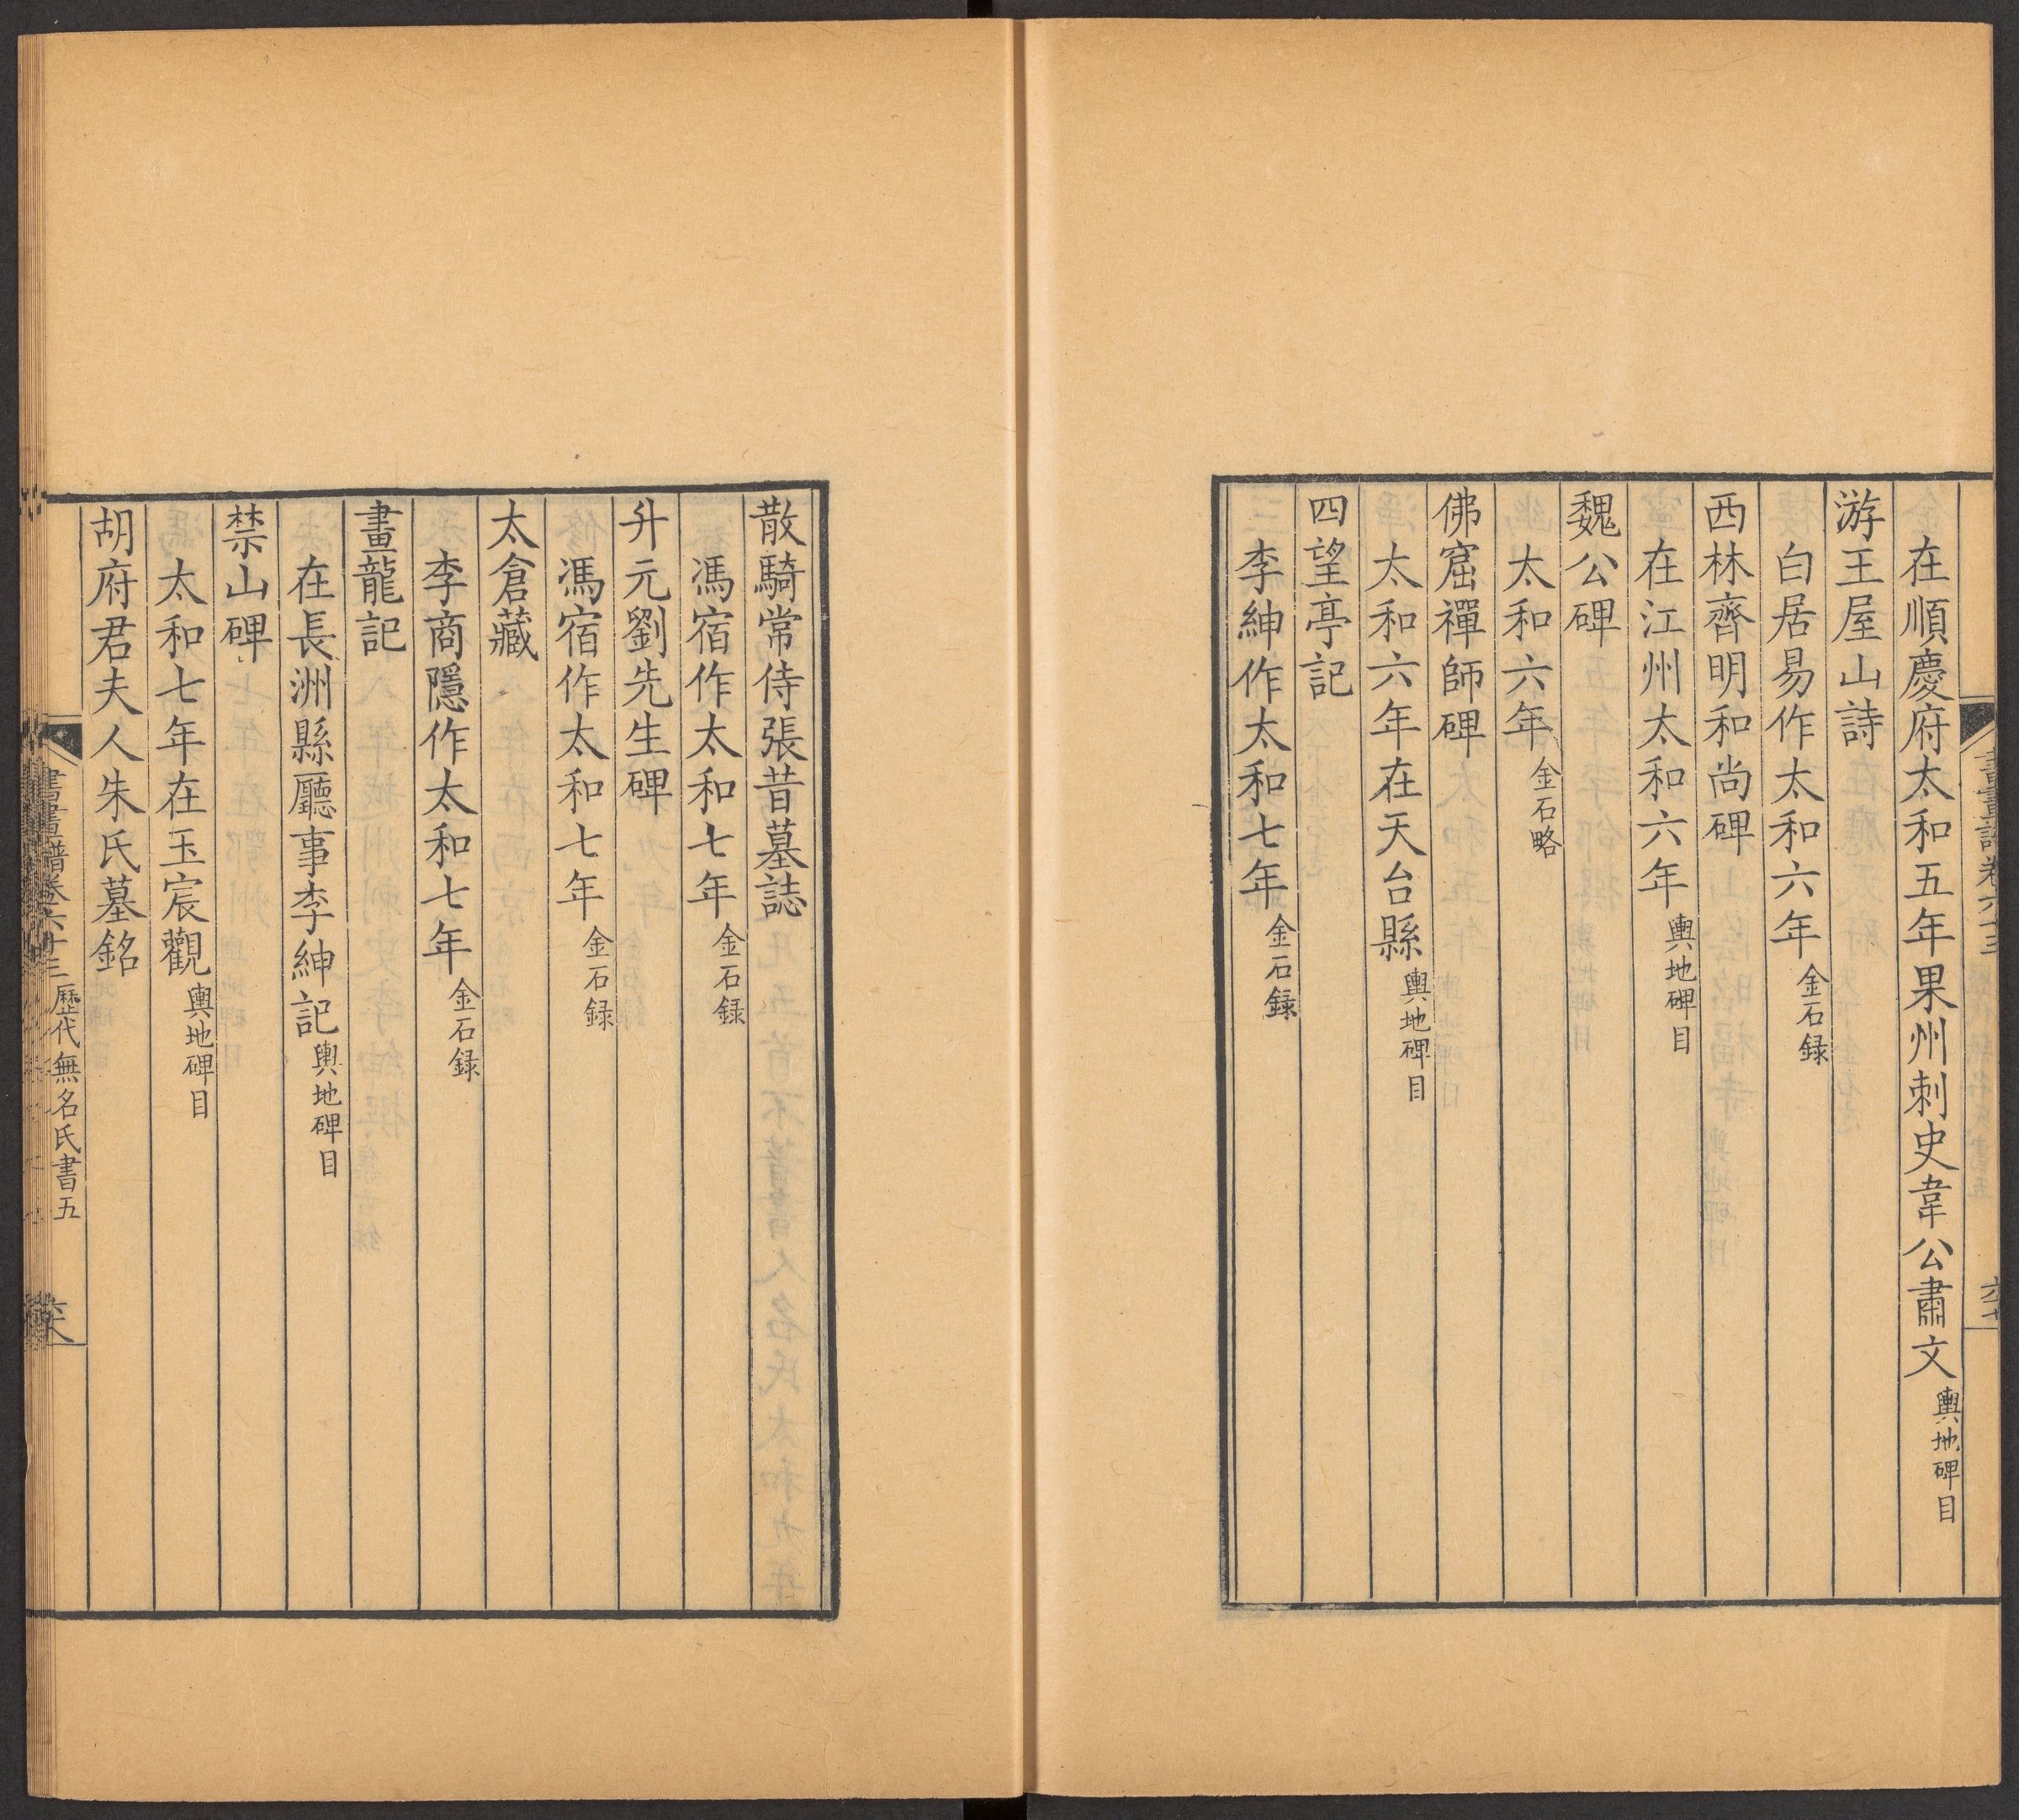 在順慶府太和五年果州刺史韋公肅文輿地碑目
游王屋山詩
白居易作太和六年金石録
西林齊明和尚碑
在江州太和六年輿地碑目
魏公碑
太和六年金石略
佛窟禪師碑
太和六年在天台縣輿地碑目
四望亭記
李紳作太和七年金石録
散騎常侍張昔墓誌
馮宿作太和七年金石録
升元劉先生碑
馮宿作太和七年金石録
太倉藏
李商隱作太和七年金石録
畫龍記
在長洲縣廳事李紳記輿地碑目
禁山碑
太和七年在玉宸觀輿地碑目
胡府君夫人朱氏墓銘
書畫譜卷六十三 歷代無名氏書五 六八